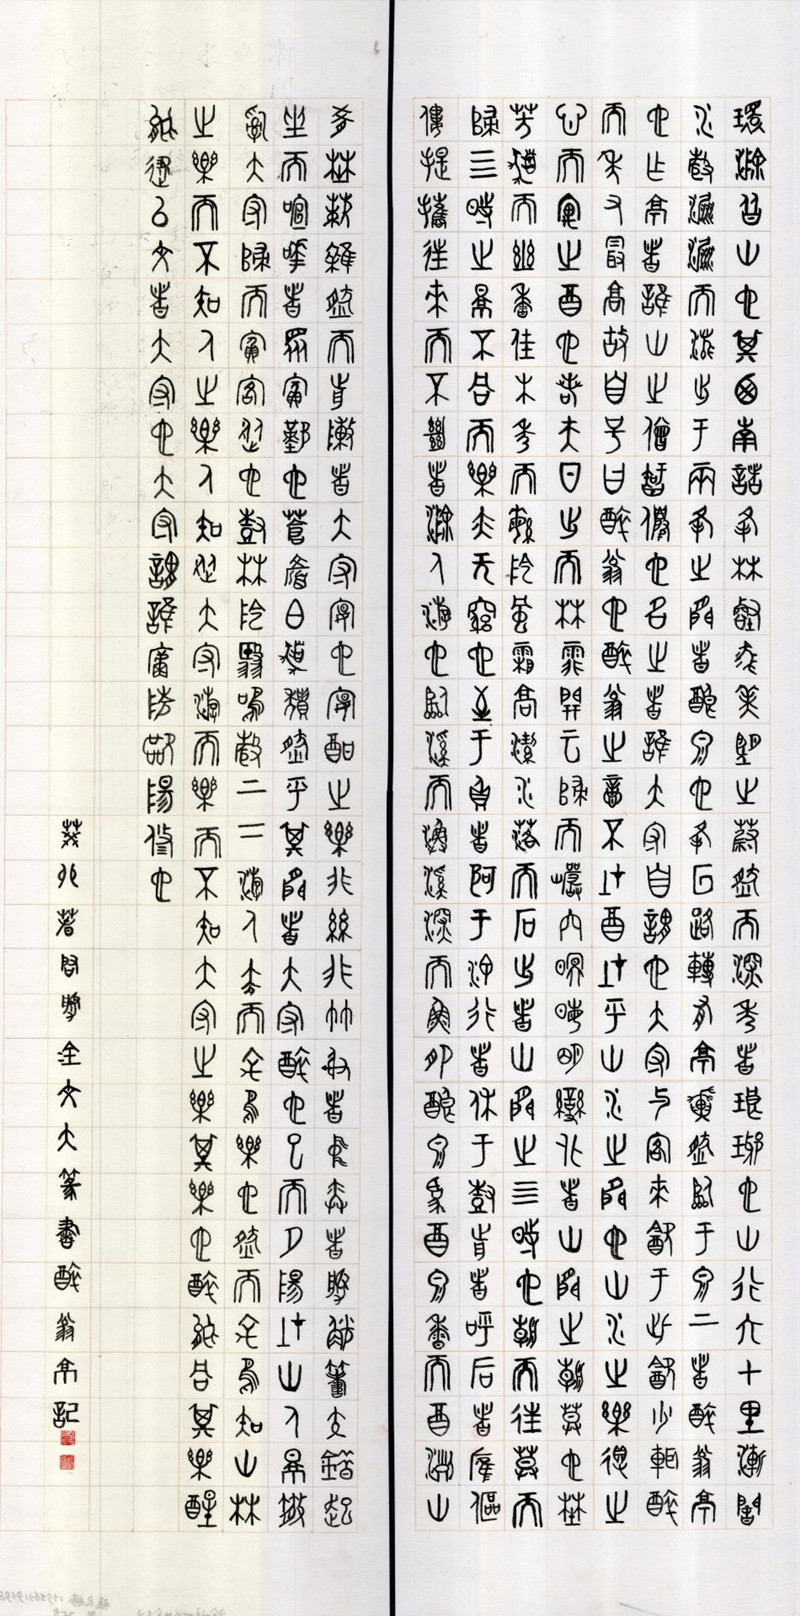 環滁皆山也其西南諸峯林壑尤美望之蔚然而深秀者琅琊也山行六七里漸聞
水聲潺潺而瀉出于兩峯之間者釀泉也峯回路轉有亭翼然臨于泉上者醉翁亭
也作亭者誰山之僧智僊也名之者誰太守自謂也太守與客來飲于此飲少輒醉
而年又最高故自號曰醉翁也醉翁之意不在酒在乎山水之間也山水之樂得之
心而寓之酒也若夫日出而林霏開云歸而巖穴暝晦明變化者山間之朝暮也野
芳發而幽香佳木秀而繁陰風霜高潔水落而石出者山間之四時也朝而往暮而
歸四時之景不同而樂亦无窮也至于負者歌于塗行者休于樹前者呼后者應傴
僂提攜往來而不絕者滁人遊也臨溪而漁溪深而魚肥釀泉為酒泉香而酒洌山
肴野蔌雜然而前陳者太守宴也宴酣之樂非絲非竹射者中弈者勝觥籌交錯起
坐而喧譁者眾賓歡也蒼顏白髮頹然乎其間者太守醉也已而夕陽在山人影散
亂太守歸而賓客從也樹林陰翳鳴聲上下遊人去而禽鳥樂也然而禽鳥知山林
之樂而不知人之樂人知從太守遊而樂而不知太守之樂其樂也醉能同其樂醒
能述以文者太守也太守謂誰廬陵歐陽修也
金文大篆書醉翁亭記